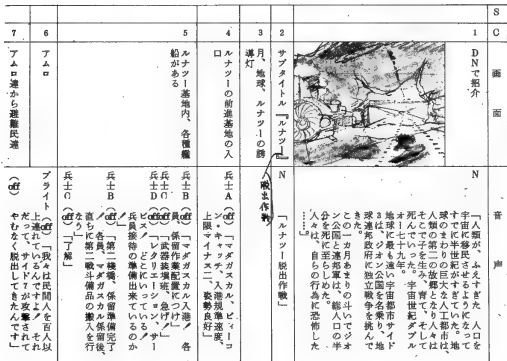 S
C
画面
音声
1
DNで紹介
N
「人類が、ふえすぎた 人口を
宇宙に移民させるようになって
すでに半世紀がすぎていた。地
球のまわりの巨大な人工都市は、
人類の第二の故郷となり人々は
そこで子を生み、育て、そして
死んでいった。宇宙世紀ダブル
オー七十九年。
地球に最も遠い宇宙都市サイド
3は、ジオン公国を名乗り、地
球連邦政府に独立戦争を挑んで
きた。
この一カ月あまりの斗いでジオ
ン公国と連邦軍は、総人口の半
分を死に至らしめた。
人々は、自らの行為に恐怖した
……」
2
サブタイトル『ルナツー』
脱出作戦
N
「ルナツー脱出作戦」
3
月、地球、ルナツーの誘
導灯
4
ルナツーの前進基地の入
口
兵士A(off)「マダガスカル、ビーコ
ン・キャッチ、入港規準速度、
上限マイナス二、姿勢良好」
5
ルナツー基地内、各種艦
船がある
兵士B(off)「マダガスカル入港! 各
員、係留作業配置につけ」
兵士C(off)「武器装塡班、急げ!」
兵士D(off)「レクリエーション・サー
ビス! どこにいっている!
兵員接待の準備出来ているのか
!」
兵士B(off)「第二棧橋、係留準備完了
! 各員、マダガスカル係留後、
直ちに第二戦斗備品の搬入を行
なう」
兵士C(off)「了解」
6
アムロ
ブライト(off)「我々は民間人を百人以
上連れているんですよ! それ
だって、サイド7が攻撃されて
やむなく脱出してきたんです」
7
アムロ達から避難民達
(off)